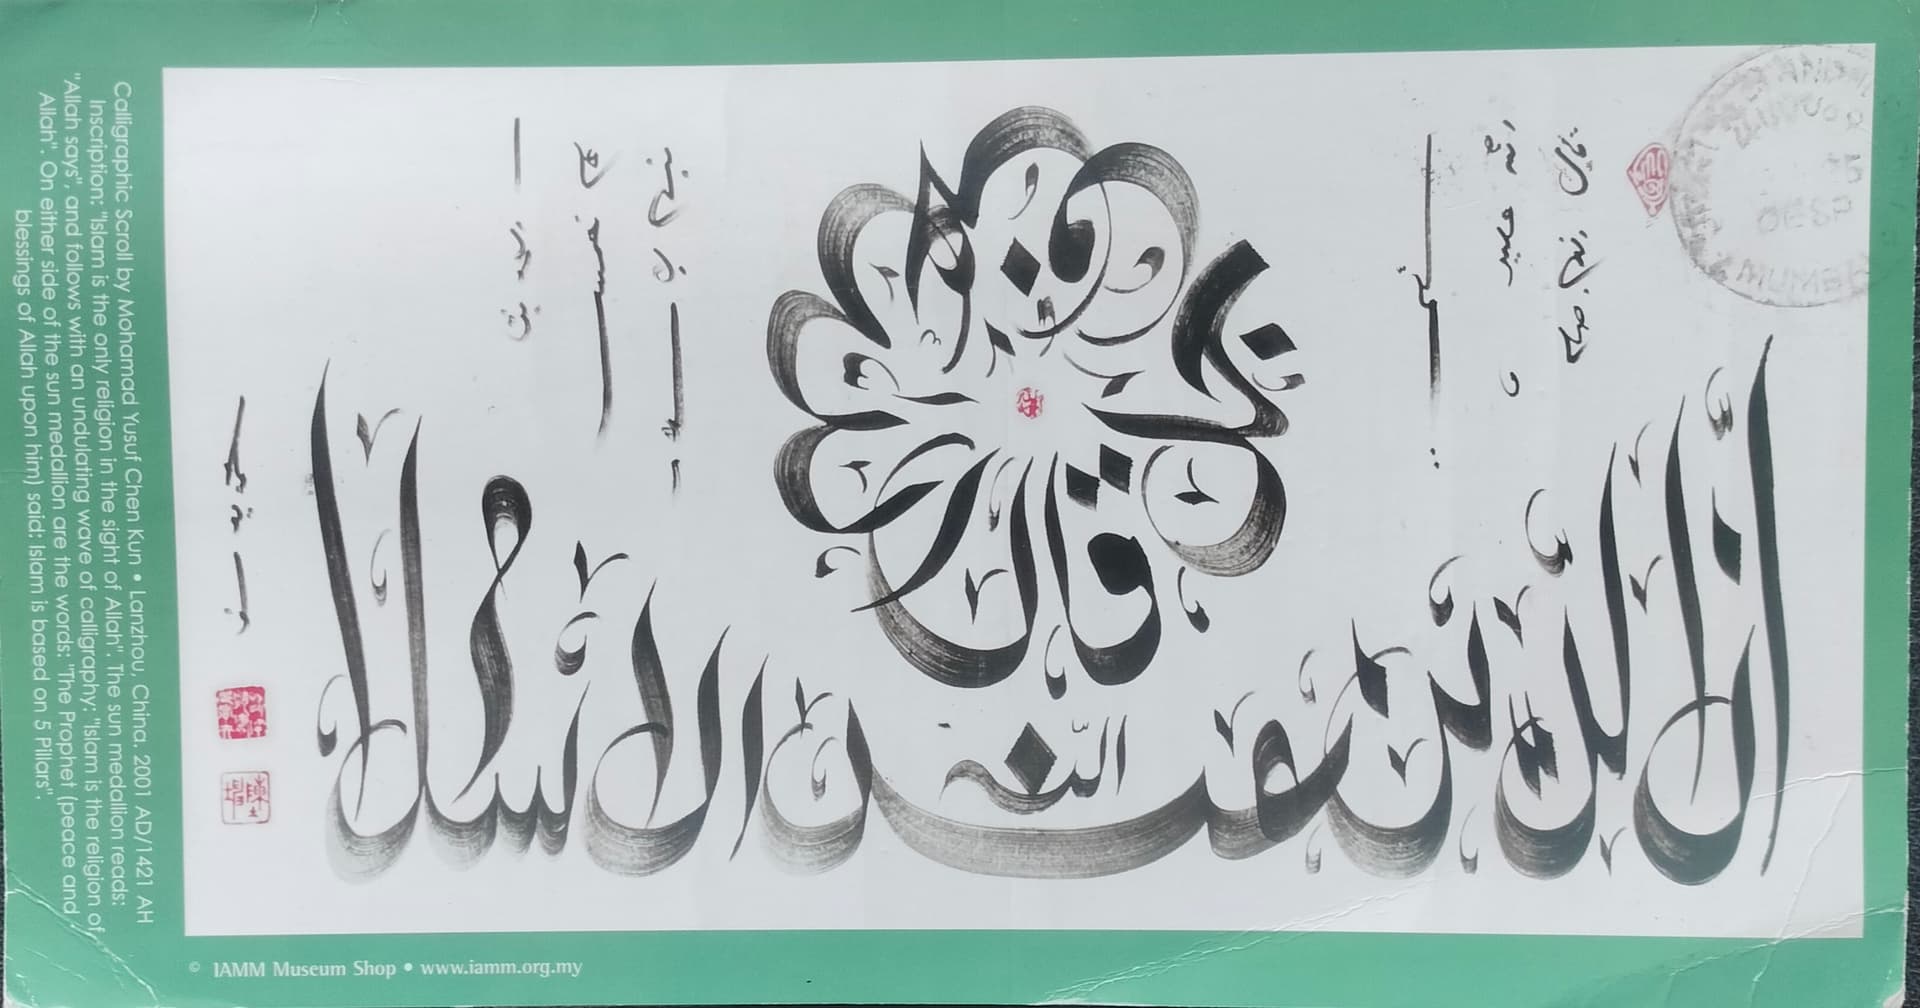 Calligraphic Scroll by Mohamad Yusuf Chen Kun • Lanzhou, China. 2001 AD/1421 AH
Inscription: "Islam is the only religion in the sight of Allah". The sun medallion reads:
"Allah says", and follows with an undulating wave of calligraphy: "Islam is the religion of
Allah". On either side of the sun medallion are the words: "The Prophet (peace and
blessings of Allah upon him) said: Islam is based on 5 Pillars".
قال الله تعالى
ان الدين عند الله الاسلام
قال النبي صلى
الله عليه و
سلم
بني الاسلام
على خمس
© IAMM Museum Shop • www.iamm.org.my